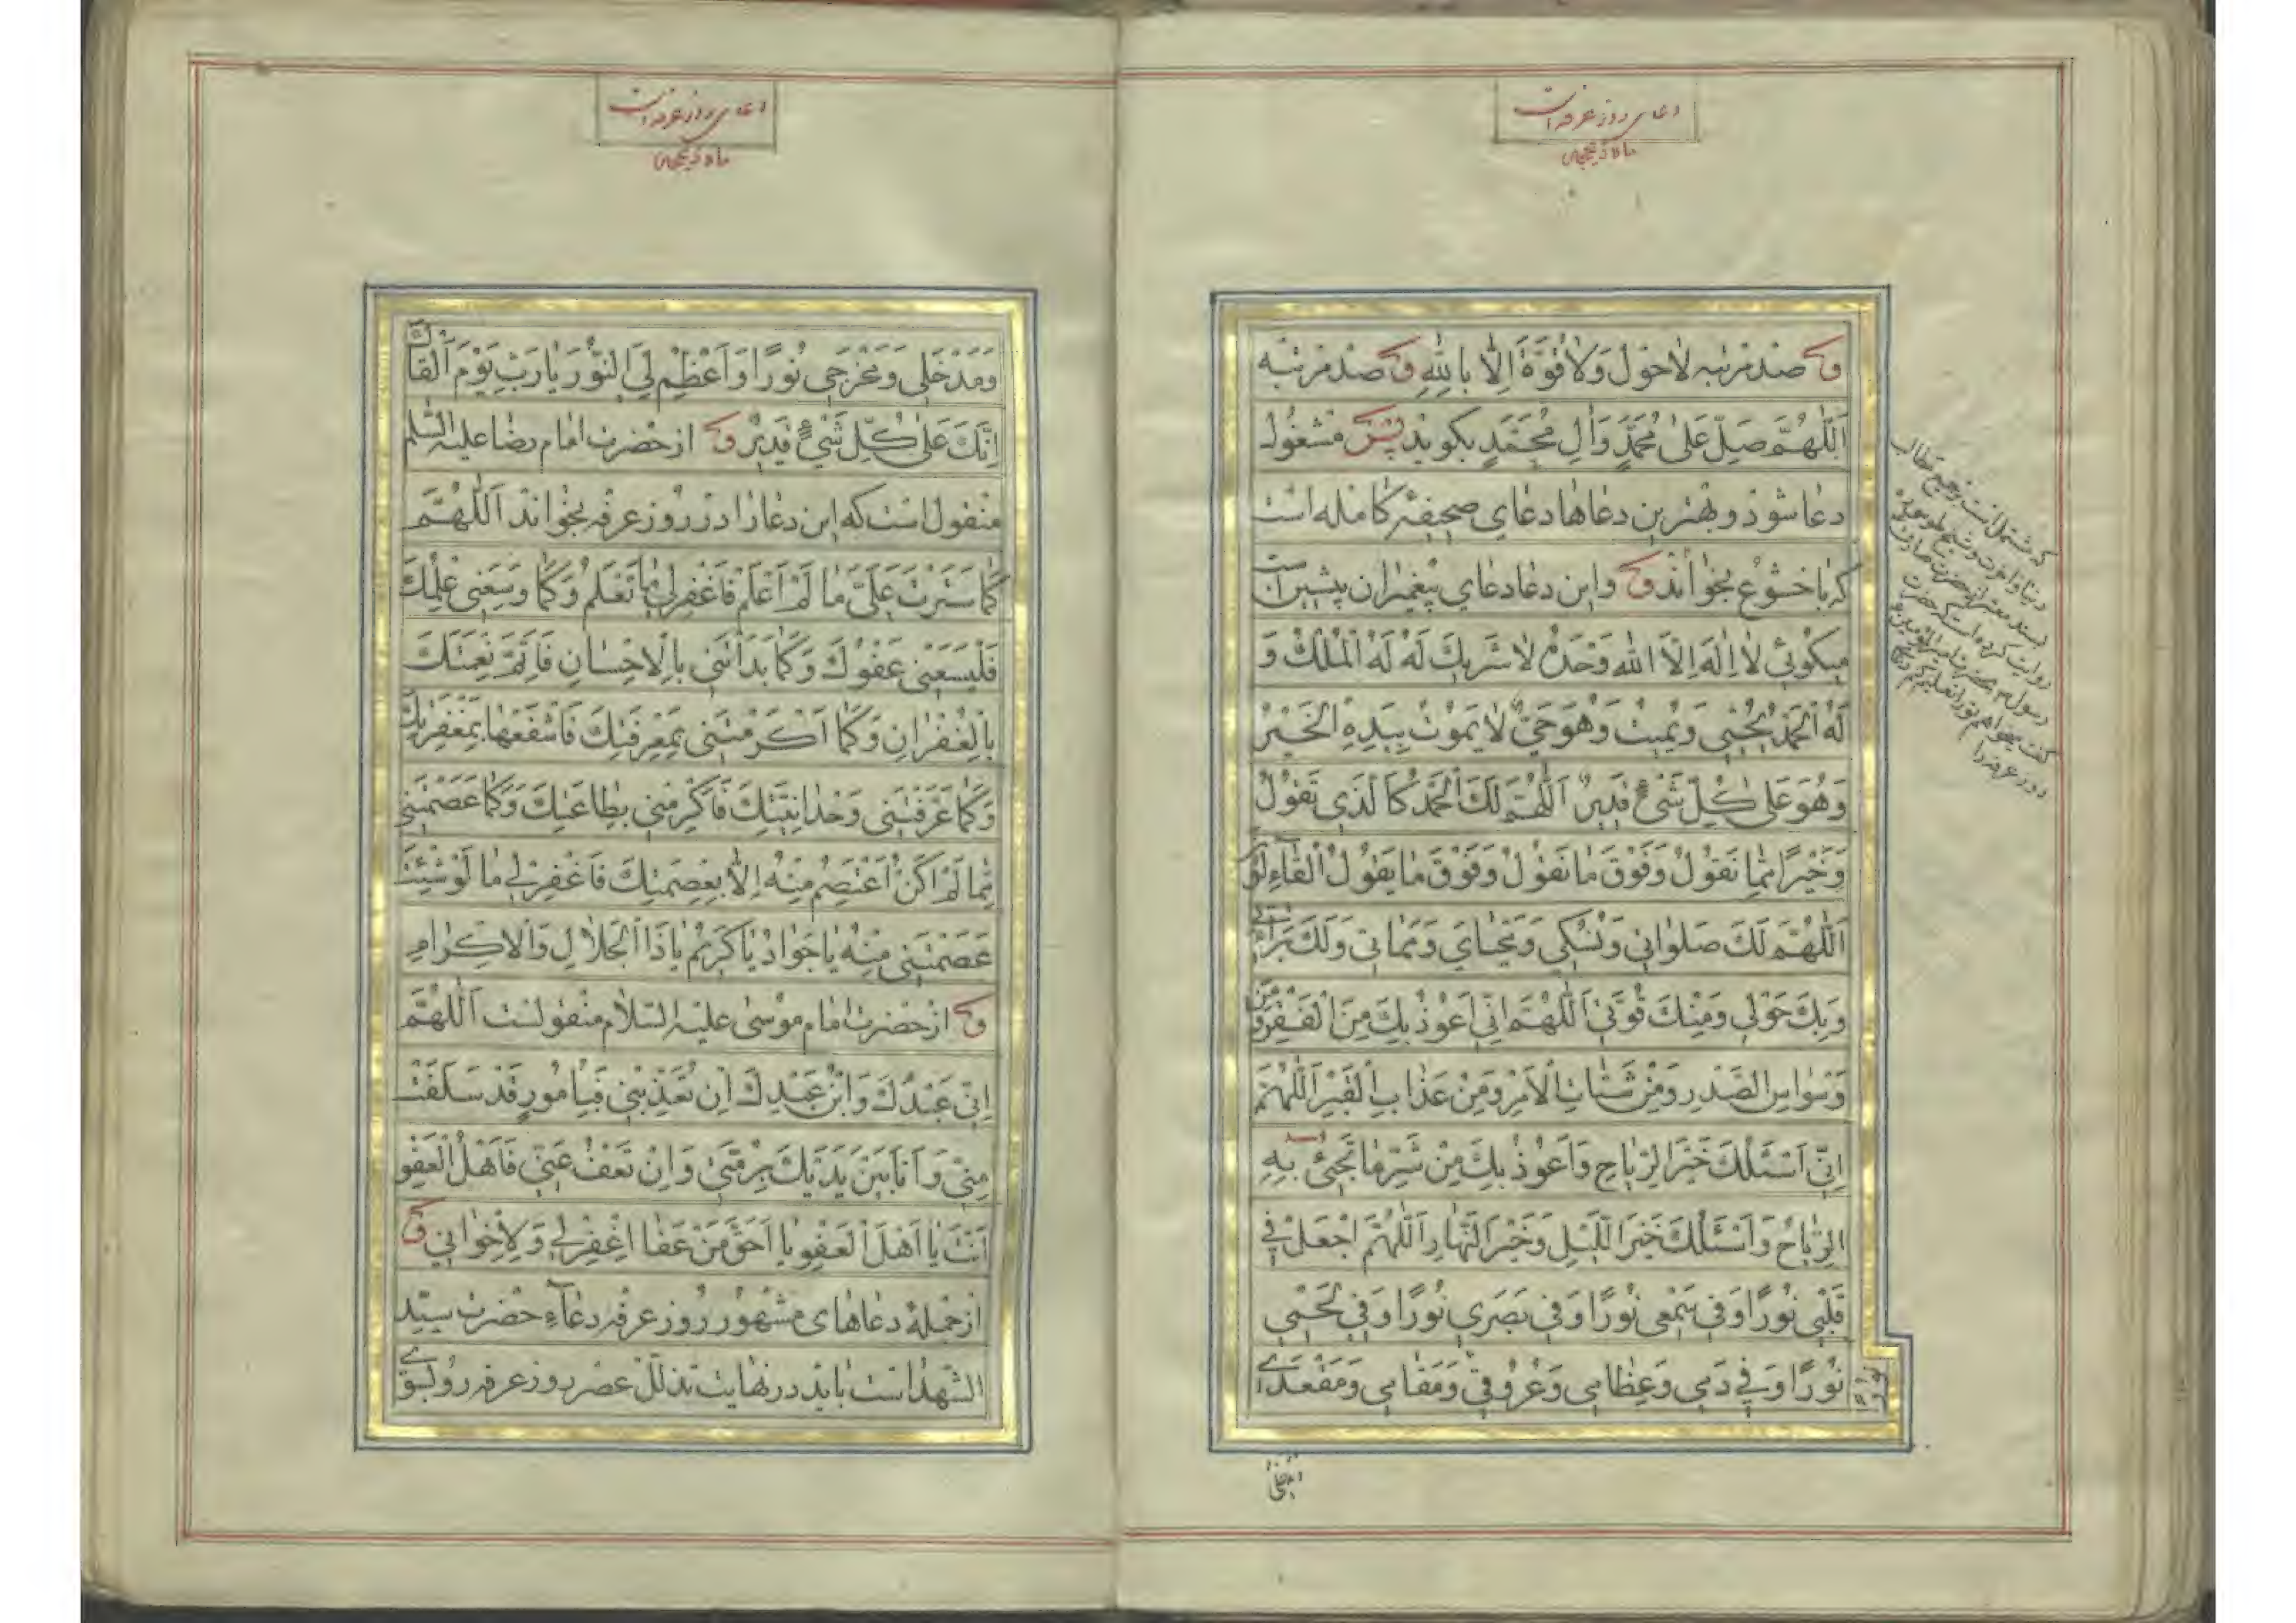 دعای روز عرفه است
ماه ذیحجه
و صد مرتبه لاحَوْلَ وَلاقُوَّةَ اِلّا بِاللهِ و صد مرتبه
اَللّهُمَّ صَلِّ عَلى مُحَمَّدٍ وَالِ مُحَمَّدٍ بکوید پس مشغول
دعا شود و بهترین دعاها دعای صحیفهٔ کامله است
که با خشوع بخواند و این دعا دعای پیغمبران پیشین است
میکوئی لا اِلهَ اِلَّا اللهُ وَحْدَهُ لا شَریكَ لَهُ لَهُ الْمُلْكُ وَ
لَهُ الْحَمْدُ یُحْیی وَیُمیتُ وَهُوَ حَیٌّ لا یَمُوتُ بِیَدِهِ الْخَیْرُ
وَهُوَ عَلى كُلِّ شَیْءٍ قَدیرٌ اَللّهُمَّ لَكَ الْحَمْدُ كَالَّذی تَقُولُ
وَخَیْرًا مِمّا نَقُولُ وَفَوْقَ ما نَقُولُ وَفَوْقَ ما یَقُولُ الْقآئِلُونَ
اَللّهُمَّ لَكَ صَلَواتی وَنُسُكی وَمَحْیایَ وَمَماتی وَلَكَ بَرآئَتی
وَبِكَ حَوْلی وَمِنْكَ قُوَّتی اَللّهُمَّ اِنّی اَعُوذُ بِكَ مِنَ الْفَقْرِ وَمِنْ
وَسْواسِ الصَّدْرِ وَمِنْ شَتاتِ الْاَمْرِ وَمِنْ عَذابِ الْقَبْرِ اَللّهُمَّ
اِنّی اَسْئَلُكَ خَیْرَ الرِّیاحِ وَاَعُوذُ بِكَ مِنْ شَرِّ ما تَجیئُ بِهِ
الرِّیاحُ وَاَسْئَلُكَ خَیْرَ اللَّیْلِ وَخَیْرَ النَّهارِ اَللّهُمَّ اجْعَلْ فی
قَلْبی نُورًا وَفی سَمْعی نُورًا وَفی بَصَری نُورًا وَفی لَحْمی
نُورًا وَفی دَمی وَعِظامی وَعُرُوقی وَمَقامی وَمَقْعَدی
نورا
که مشتمل است بر جمیع مطالب
دنیا و آخرت و شیخ طوسی
بسند معتبر از حضرت صادق
روایت کرده است که حضرت
رسول بحضرت امیرالمؤمنین
گفت میخواهم تو را تعلیم کنم دعای
روز عرفه را
دعای روز عرفه است
ماه ذیحجه
وَمَدْخَلی وَمَخْرَجی نُورًا وَاَعْظِمْ لِیَ النُّورَ یا رَبِّ یَوْمَ اَلْقاكَ
اِنَّكَ عَلى كُلِّ شَیْءٍ قَدیرٌ و از حضرت امام رضا علیه السلم
منقول است که این دعا را در روز عرفه بخواند اَللّهُمَّ
كَما سَتَرْتَ عَلَیَّ ما لَمْ اَعْلَمْ فَاغْفِرْ لی ما تَعْلَمُ وَكَما وَسِعَنی عِلْمُكَ
فَلْیَسَعْنی عَفْوُكَ وَكَما بَدَاْتَنی بِالْاِحْسانِ فَاَتِمَّ نِعْمَتَكَ
بِالْغُفْرانِ وَكَما اَكْرَمْتَنی بِمَعْرِفَتِكَ فَاشْفَعْها بِمَغْفِرَتِكَ
وَكَما عَرَّفْتَنی وَحْدانِیَّتَكَ فَاَكْرِمْنی بِطاعَتِكَ وَكَما عَصَمْتَنی
مِمّا لَمْ اَكُنْ اَعْتَصِمُ مِنْهُ اِلّا بِعِصْمَتِكَ فَاغْفِرْ لی ما لَوْ شِئْتَ
عَصَمْتَنی مِنْهُ یا جَوادُ یا كَریمُ یا ذَا الْجَلالِ وَالْاِكْرامِ
و از حضرت امام موسی علیه السّلام منقولست اَللّهُمَّ
اِنّی عَبْدُكَ وَابْنُ عَبْدِكَ اِنْ تُعَذِّبْنی فَبِاُمُورٍ قَدْ سَلَفَتْ
مِنّی وَاَنَا بَیْنَ یَدَیْكَ بِرُمَّتی وَاِنْ تَعْفُ عَنّی فَاَهْلُ الْعَفْوِ
اَنْتَ یا اَهْلَ الْعَفْوِ یا اَحَقَّ مَنْ عَفا اغْفِرْ لی وَلِاِخْوانی و
از جملهٔ دعاهای مشهور روز عرفه دعاء حضرت سیّد
الشهداست باید در نهایت تذلّل عصر روز عرفه رو بسوی